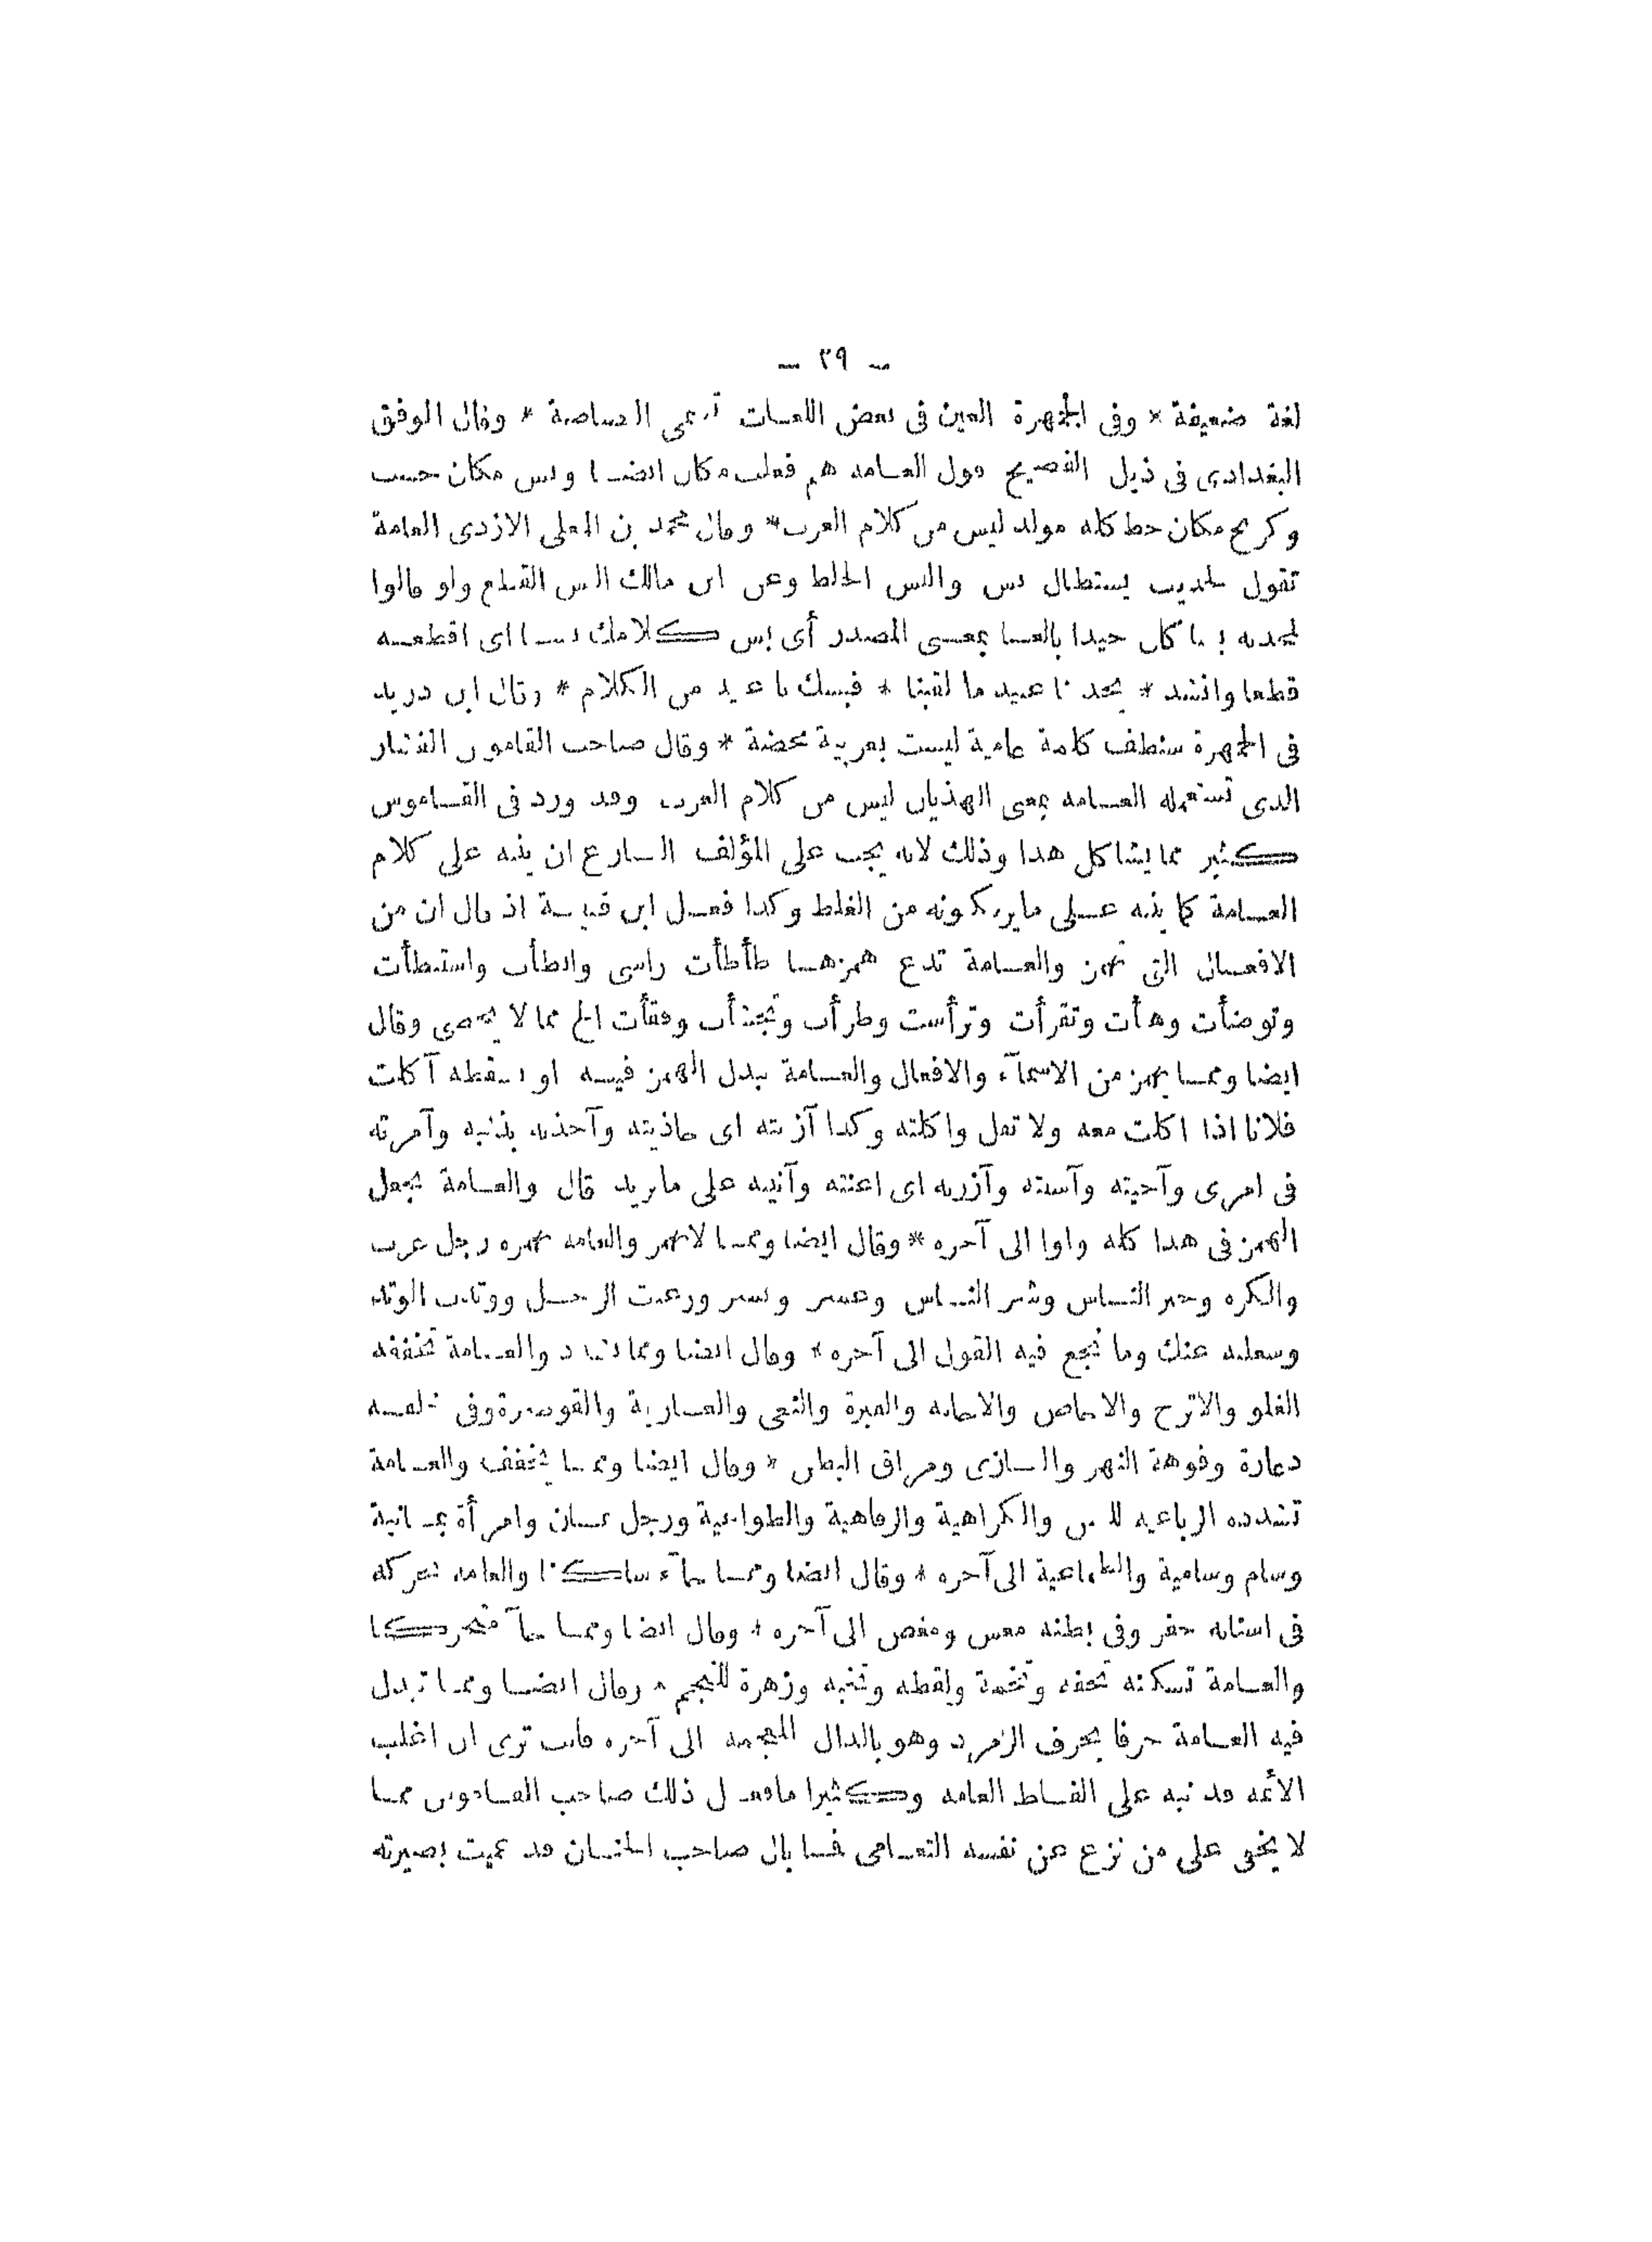 — ٢٩ —
لغة ضعيفة * وفى الجمهرة العين فى بعض اللغات تدعى الصاصة * وقال الموفق
البغدادى فى ذيل الفصيح قول العامه هم فعلت مكان ايضا وبس مكان حسب
وكر مكان حط كله مولد ليس من كلام العرب * وقال محمد بن المعلى الازدى العامة
تقول لحديث يستطال بس والبس الخلط وعن ابى مالك البس القطع ولو قالوا
لمحدثه بسا كان جيدا بالغا بمعنى المصدر أى بس كلامك بسا اى اقطعه
قطعا وانشد * يحدثنا عبيد ما لقينا * فبسك يا عبيد من الكلام * وقال ابن دريد
فى الجمهرة سنطف كلمة عامية ليست بعربية محضة * وقال صاحب القاموس الفشار
الذى تستعمله العامه بمعنى الهذيان ليس من كلام العرب وقد ورد فى القاموس
كثير مما يشاكل هذا وذلك لانه يجب على المؤلف البارع ان ينبه على كلام
العامة كما ينبه على ما يرتكبونه من الغلط وكذا فعل ابن قتيبة اذ قال ان من
الافعال التى تهمز والعامة تدع همزها طأطأت راسى وابطأت واستبطأت
وتوضأت وهيأت وتقرأت وترأست وطرأت وتجشأت وفقأت الخ مما لا يحصى وقال
ايضا ومما يهمز من الاسمآء والافعال والعامة تبدل الهمز فيه او تسقطه آكلت
فلانا اذا اكلت معه ولا تقل واكلته وكذا آزيته اى حاذيته وآخذته بذنبه وآمرته
فى امرى وآخيته وآسيته وآزرته اى اعنته وآتيته على ما يريد قال والعامة تجعل
الهمز فى هذا كله واوا الى آخره * وقال ايضا ومما لا يهمز والعامه تهمزه رجل عزب
والكره وخير الناس وشر الناس وعسر ويسر ورعبت الرجل ووتدت الوتد
وشغلته عنك وما نجع فيه القول الى آخره * وقال ايضا ومما يشدد والعامة تخففه
الفلو والاترج والاجاص والاجانه والقبرة والنعى والعارية والقوصرة وفى خلقه
دعارة وفوهة النهر والبازى ومراق البطن * وقال ايضا ومما يخفف والعامة
تشدده الرباعيه للسن والكراهية والرفاهية والطواعية ورجل يمان وامرأة يمانية
وشام وشامية والطماعية الى آخره * وقال ايضا ومما جآء ساكنا والعامه تحركه
فى اسنانه حفر وفى بطنه مغس ومغص الى آخره * وقال ايضا ومما جآء متحركا
والعامة تسكنه تحفه وتخمة ولقطه ونخبه وزهرة للنجم * وقال ايضا ومما تبدل
فيه العامة حرفا بحرف الزمرد وهو بالذال المعجمه الى آخره فانت ترى ان اغلب
الأئمه قد نبه على الفاظ العامه وكثيرا ما فعل ذلك صاحب القاموس مما
لا يخفى على من نزع عن نفسه التعامى فما بال صاحب الجنان قد عميت بصيرته